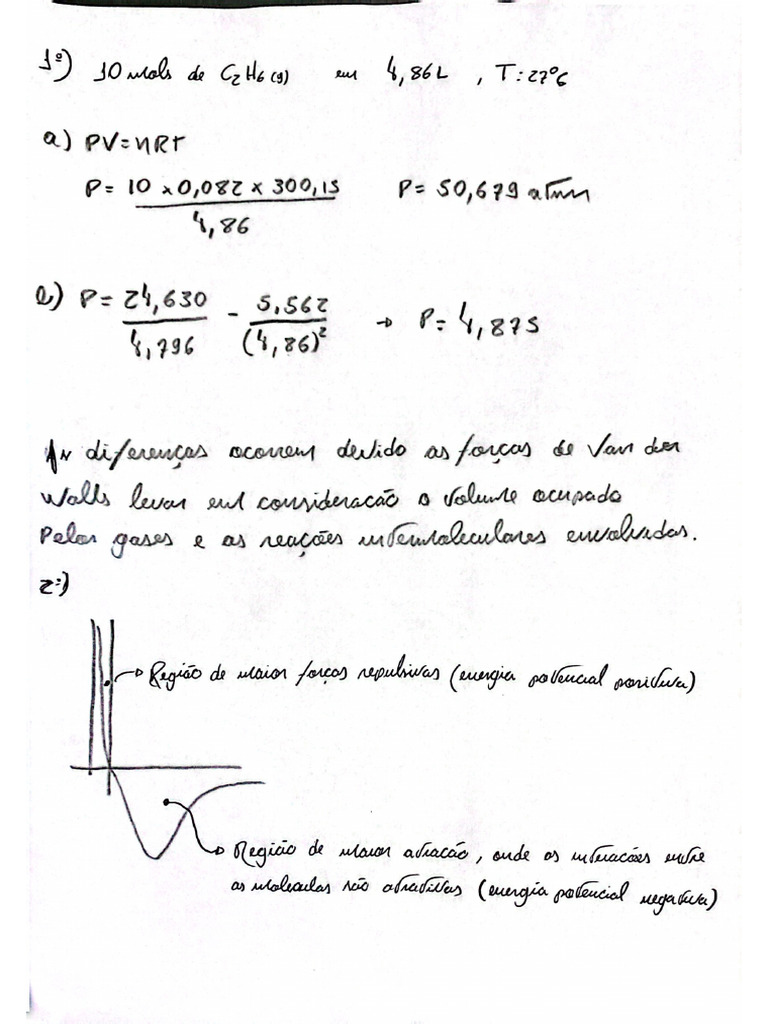 1º) 10 mols de C2H6(g) em 4,86L , T: 27°C
a) PV=nRT
P= 10 x 0,082 x 300,15 / 4,86 P= 50,679 atm
b) P= 24,630 / 4,796 - 5,562 / (4,86)² → P= 4,875
As diferenças ocorrem devido as forças de Van der
Walls levar em consideração o volume ocupado
Pelos gases e as reações intermoleculares envolvidas.
2º)
→ Região de maior forças repulsivas (energia potencial positiva)
→ Região de maior atração, onde as interacões entre
as moleculas são atrativas (energia potencial negativa)